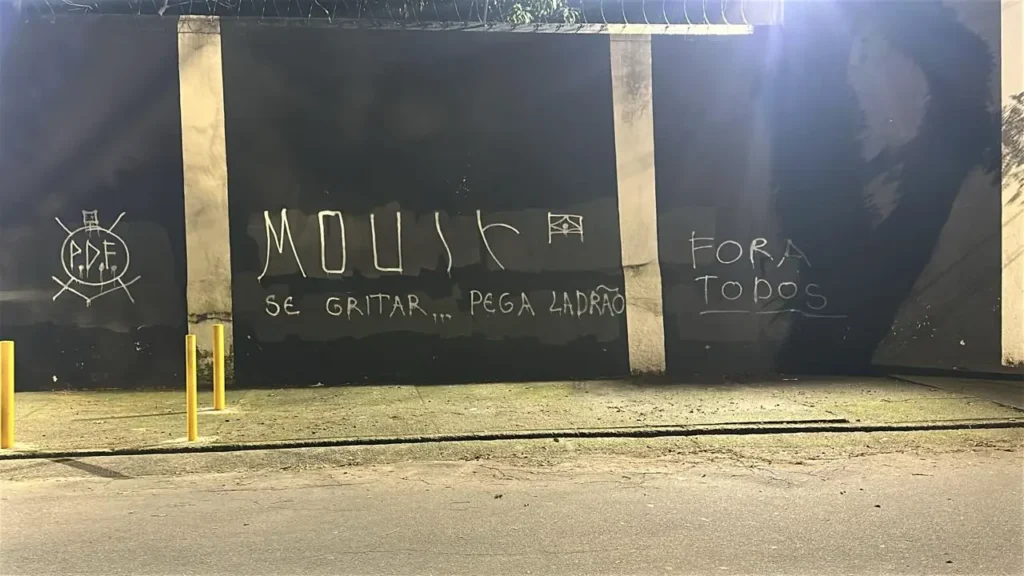 P.D.F
SE GRITAR... PEGA LADRÃO
FORA
TODOS